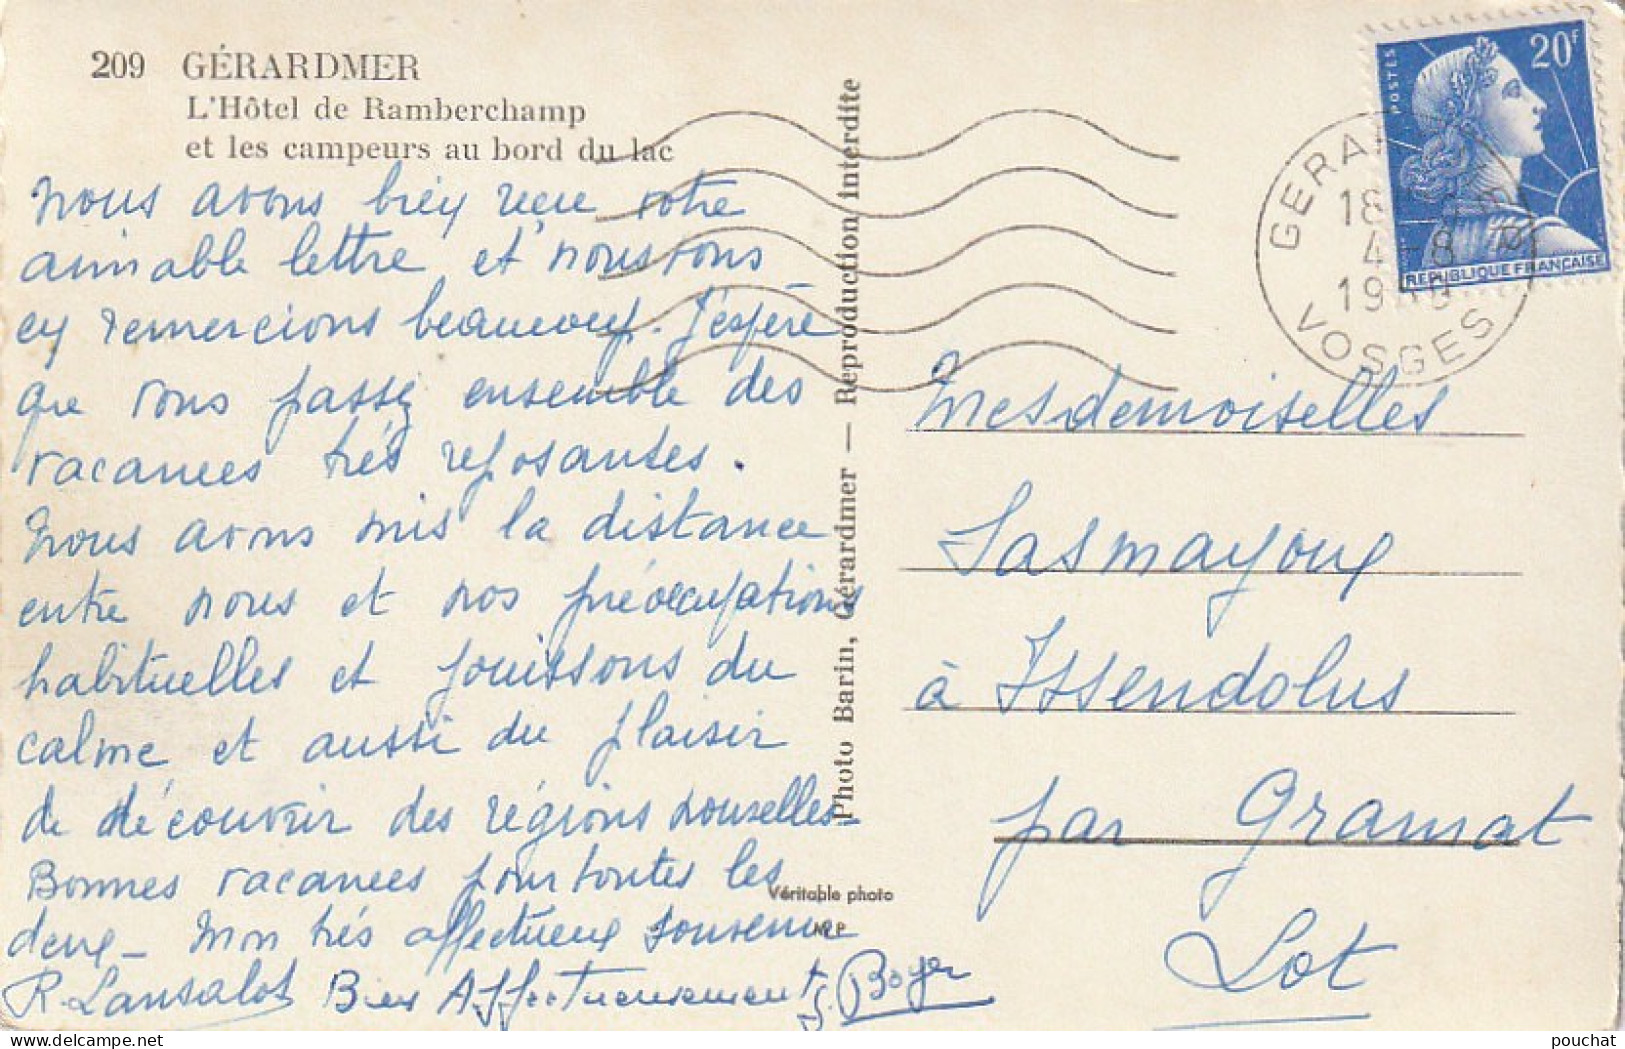 209 GÉRARDMER
L'Hôtel de Ramberchamp
et les campeurs au bord du lac
Nous avons bien reçu votre
aimable lettre et nous vous
en remercions beaucoup. J'espère
que vous passez ensemble des
vacances très reposantes.
Nous avons mis la distance
entre nous et nos préoccupations
habituelles et jouissons du
calme et aussi du plaisir
de découvrir des régions nouvelles.
Bonnes vacances pour toutes les
deux - Mon très affectueux souvenir
R. Lansalot Bien Affectueusement S. Boyer
Photo Barin, Gérardmer — Reproduction interdite
Véritable photo
M.P.
POSTES
20F
REPUBLIQUE FRANÇAISE
GERARDMER
18
4-8
19
VOSGES
Mesdemoiselles
Lasmayoux
à Issendolus
par Gramat
Lot
pouchat